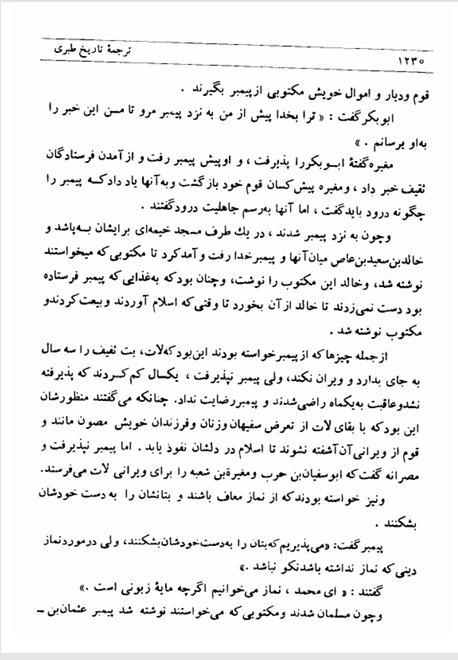 ۱۲۳۰ ترجمهٔ تاریخ طبری
قوم ودیار و اموال خویش مکتوبی از پیمبر بگیرند .
ابوبکر گفت : « ترا بخدا پیش از من به نزد پیمبر مرو تا مـن این خبر را
به‌او برسانم . »
مغیره گفتهٔ ابـوبکررا پذیرفت ، و او پیش پیمبر رفت و از آمدن فرستادگان
ثقیف خبر داد ، ومغیره پیش کسان قوم خود بازگشت وبه آنها یاد داد کـه پیمبر را
چگونه درود باید گفت ، اما آنها به‌رسم جاهلیت درود گفتند .
وچون به نزد پیمبر شدند ، در یك طرف مسجد خیمه‌ای برایشان بـه‌پاشد و
خالدبن‌سعیدبن‌عاص میان آنها و پیمبر خدا رفت و آمد کرد تا مکتوبی که میخواستند
نوشته شد، وخالد این مکتوب را نوشت، وچنان بود که به‌غذایی که پیمبر فرستاده
بود دست نمی‌زدند تا خالد از آن بخورد تا وقتی که اسلام آوردند وبیعت کردندو
مکتوب نوشته شد .
ازجمله چیزها که از پیمبر خواسته بودند این بود که لات، بت ثقیف را سه سال
به جای بدارد و ویران نکند، ولی پیمبر نپذیرفت ، یکسال کم کـردند که پذیرفته
نشدو عاقبت به‌یکماه راضی شدند و پیمبر رضایت نداد. چنانکه می‌گفتند منظورشان
این بود که با بقای لات از تعرض سفیهان وزنان وفرزندان خویش مصون مانند و
قوم از ویرانی آن آشفته نشوند تا اسلام در دلشان نفوذ یابد . اما پیمبر نپذیرفت و
مصرانه گفت که ابوسفیان بن حرب ومغیرة بن شعبه را برای ویرانی لات می‌فرستد.
ونیز خواسته بودند که از نماز معاف باشند و بتانشان را به دست خودشان
بشکنند .
پیمبر گفت: «می‌پذیریم که بتان را به‌دست خودشان بشکنند، ولی درمورد نماز
دینی که نماز نداشته باشد نکو نباشد .»
گفتند : « ای محمد ، نماز می‌خوانیم اگرچه مایهٔ زبونی است .»
وچون مسلمان شدند ومکتوبی که می‌خواستند نوشته شد پیمبر عثمان‌بن ـ